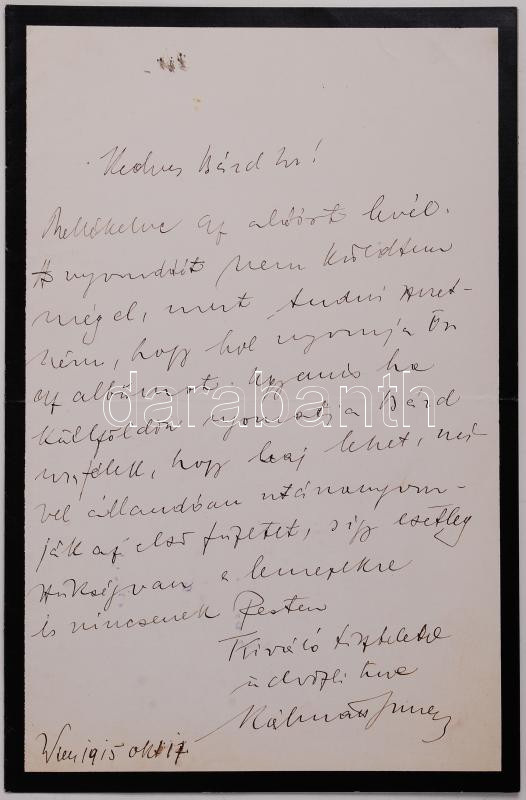 Kedves Bárd úr!
Mellékelve az aláírt levél.
A nyomdát nem küldtem
még el, mert tudni szeret-
ném, hogy hol nyomja Ön
az albumot. Ugyanis ha
külföldön nyomatja Bárd
úr, félek, hogy baj lehet, mi-
vel állandóan utánanyom-
ják az első füzetet, s így esetleg
szükség van a lemezekre
és nincsenek Pesten
Kiváló tisztelettel
üdvözli
Kálmán Imre
Wien 1915 okt 17
darabanth